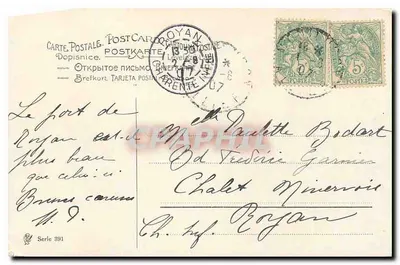 CARTE POSTALE. POST CARD
Dopisnice. POSTKARTE
Открытое письмо
Brefkort. TARJETA POSTAL
ROYAN
CHARENTE INFRE
07
07
5
POSTES
Le port de
Royan est-il
plus beau
que celui-ci
Bonnes caresses
M. P.
Mlle Paulette Bodart
Bd Frédéric Garnier
Chalet Minervois
Royan
Ch. Inf.
Serie 391